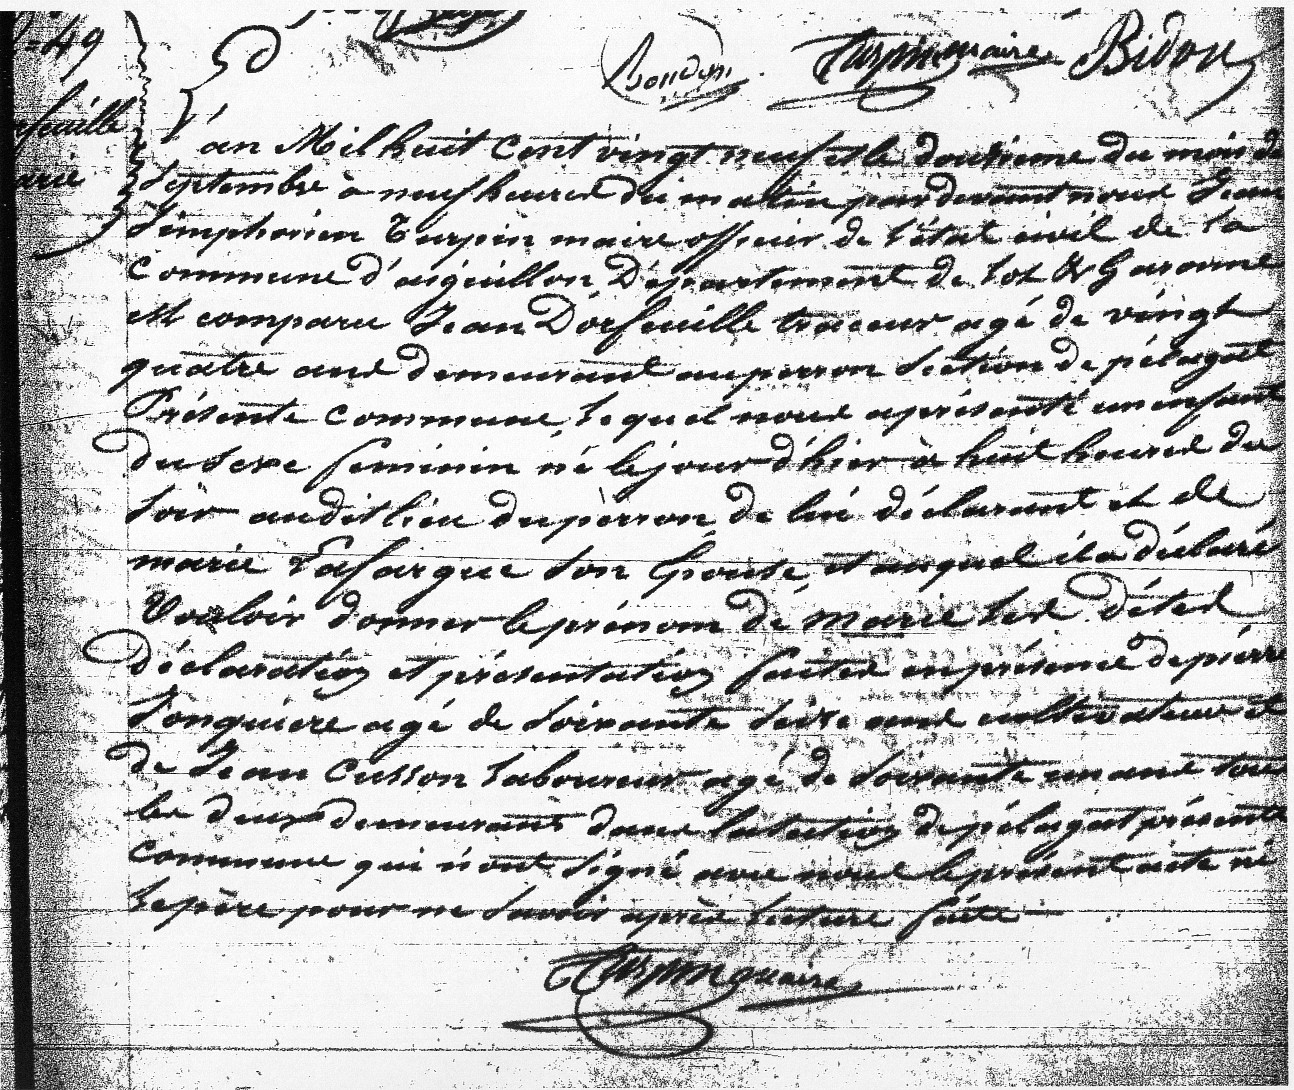 49
Boudon Turpin maire Bidou
L'an Mil huit Cent vingt neuf et le douzieme du mois de
Septembre à neuf heures du matin par devant nous Jean
Simphorien Turpin maire officier de l'état civil de la
Commune d'aiguillon Département de Lot & Garonne
est comparu Jean Dorfeuille traceur agé de vingt
quatre ans demeurant au perron Section de pélagat
Présente commune, lequel nous a présenté un enfant
du sexe feminin né le jour d'hier à huit heures du
soir audit lieu du perron de lui déclarant et de
marie Lafargue son Epouse, et auquel il a déclaré
Vouloir donner le prénom de marie les dites
déclaration et présentation faites en présence de pierre
Jonquiere agé de soixante seize ans cultivateur et
de Jean Cusson laboureur agé de soixante un ans tous
les deux demeurants dans la section de pélagat présente
commune qui n'ont signé avec nous le présent acte ni
le père pour ne savoir après lecture faite
Turpin maire